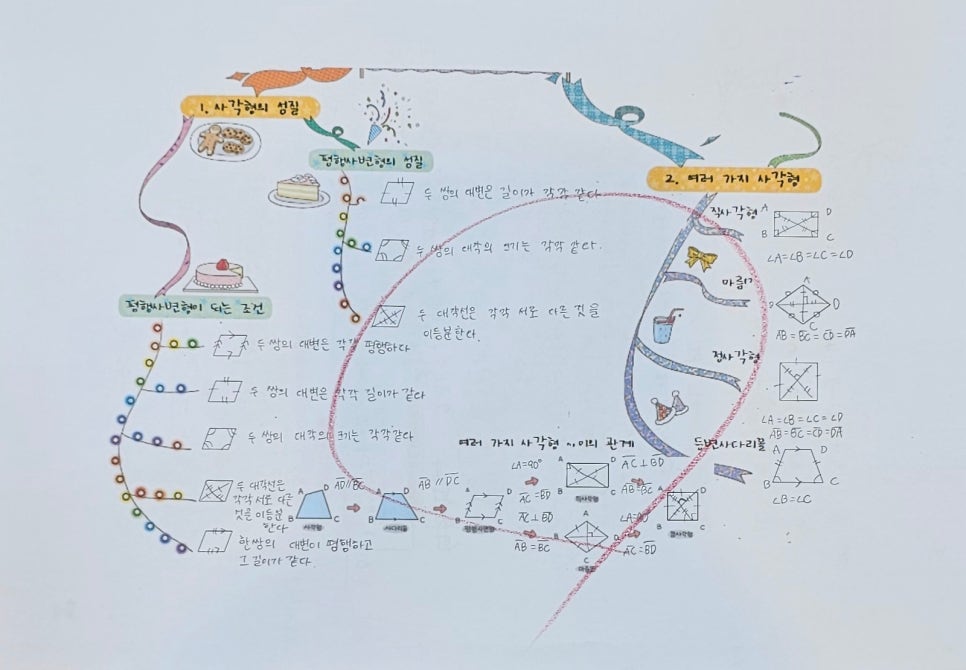 1. 사각형의 성질
평행사변형의 성질
두 쌍의 대변은 길이가 각각 같다
두 쌍의 대각의 크기는 각각 같다.
두 대각선은 각각 서로 다른 것을
이등분한다.
평행사변형이 되는 조건
두 쌍의 대변은 각각 평행하다
두 쌍의 대변은 각각 길이가 같다
두 쌍의 대각의 크기는 각각같다
두 대각선은
각각 서로 다른
것을 이등분
한다
한쌍의 대변이 평행하고
그 길이가 같다.
2. 여러 가지 사각형
직사각형
A D
B C
∠A=∠B=∠C=∠D
마름
A
B D
C
AB=BC=CD=DA
정사각형
∠A=∠B=∠C=∠D
AB=BC=CD=DA
등변사다리꼴
A D
B C
∠B=∠C
여러 가지 사각형 사이의 관계
A D
B C
사각형
AD//BC
A D
B C
사다리꼴
AB//DC
A D
B C
평행사변형
∠A=90°
AC=BD
AC⊥BD
AB=BC
A D
B C
직사각형
A
B D
C
마름모
AC⊥BD
AB=BC
∠A=90°
AC=BD
A D
B C
정사각형